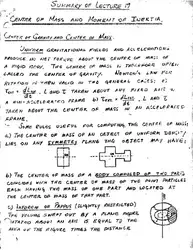 SUMMARY OF LECTURE 17
CENTER OF MASS AND MOMENT OF INERTIA.
CENTER OF GRAVITY AND CENTER OF MASS.
UNIFORM GRAVITATIONAL FIELDS AND ACCELERATIONS
PRODUCE NO NET TORQUE ABOUT THE CENTER OF MASS OF
A RIGID BODY. THE CENTER OF MASS IS THEREFORE OFTEN
CALLED THE CENTER OF GRAVITY. NEWTON'S LAW FOR
ROTATION IS THEN VALID IN TWO GENERAL CASES: a)
L AND I TAKEN ABOUT ANY FIXED AXIS IN
A NON-ACCELERATED FRAME b) L AND I
TAKEN ABOUT THE CENTER OF MASS IN AN ACCELERATED
FRAME.
SOME RULES USEFUL FOR COMPUTING THE CENTER OF MASS:
a) THE CENTER OF MASS OF AN OBJECT OF UNIFORM DENSITY
LIES ON ANY SYMMETRY PLANE THE OBJECT MAY HAVE:
b) THE CENTER OF MASS OF A BODY COMPOSED OF TWO PARTS
COINCIDES WITH THE CENTER OF MASS OF TWO POINT PARTICLES
EACH HAVING THE MASS OF ONE PART AND LOCATED AT
THE CENTER OF MASS OF THAT PART.
c) THEOREM OF PAPPUS (SLIGHTLY RESTRICTED)
THE VOLUME SWEPT OUT BY A PLANE FIGURE
ROTATED ABOUT AN AXIS IS EQUAL TO THE
AREA OF THE FIGURE TIMES THE DISTANCE